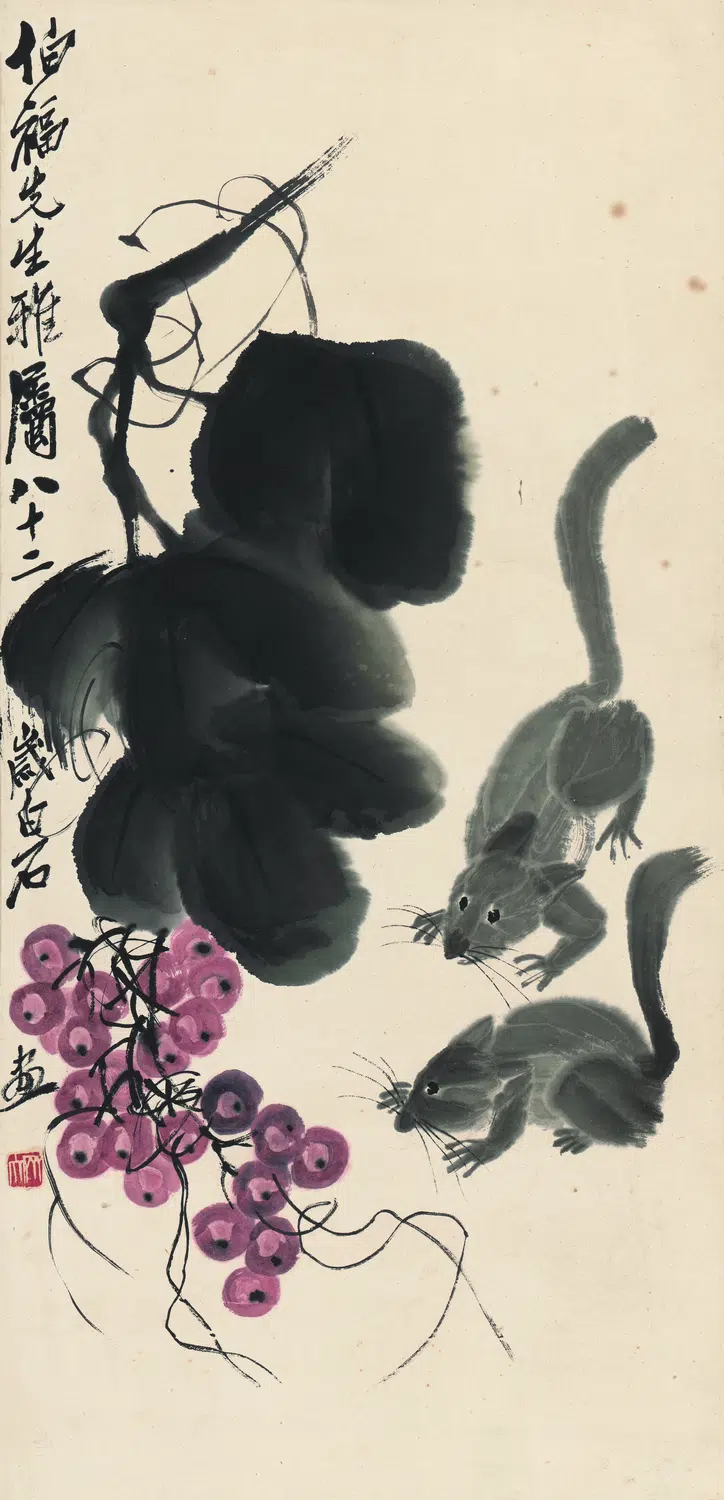 伯福先生雅屬八十二歲白石畫